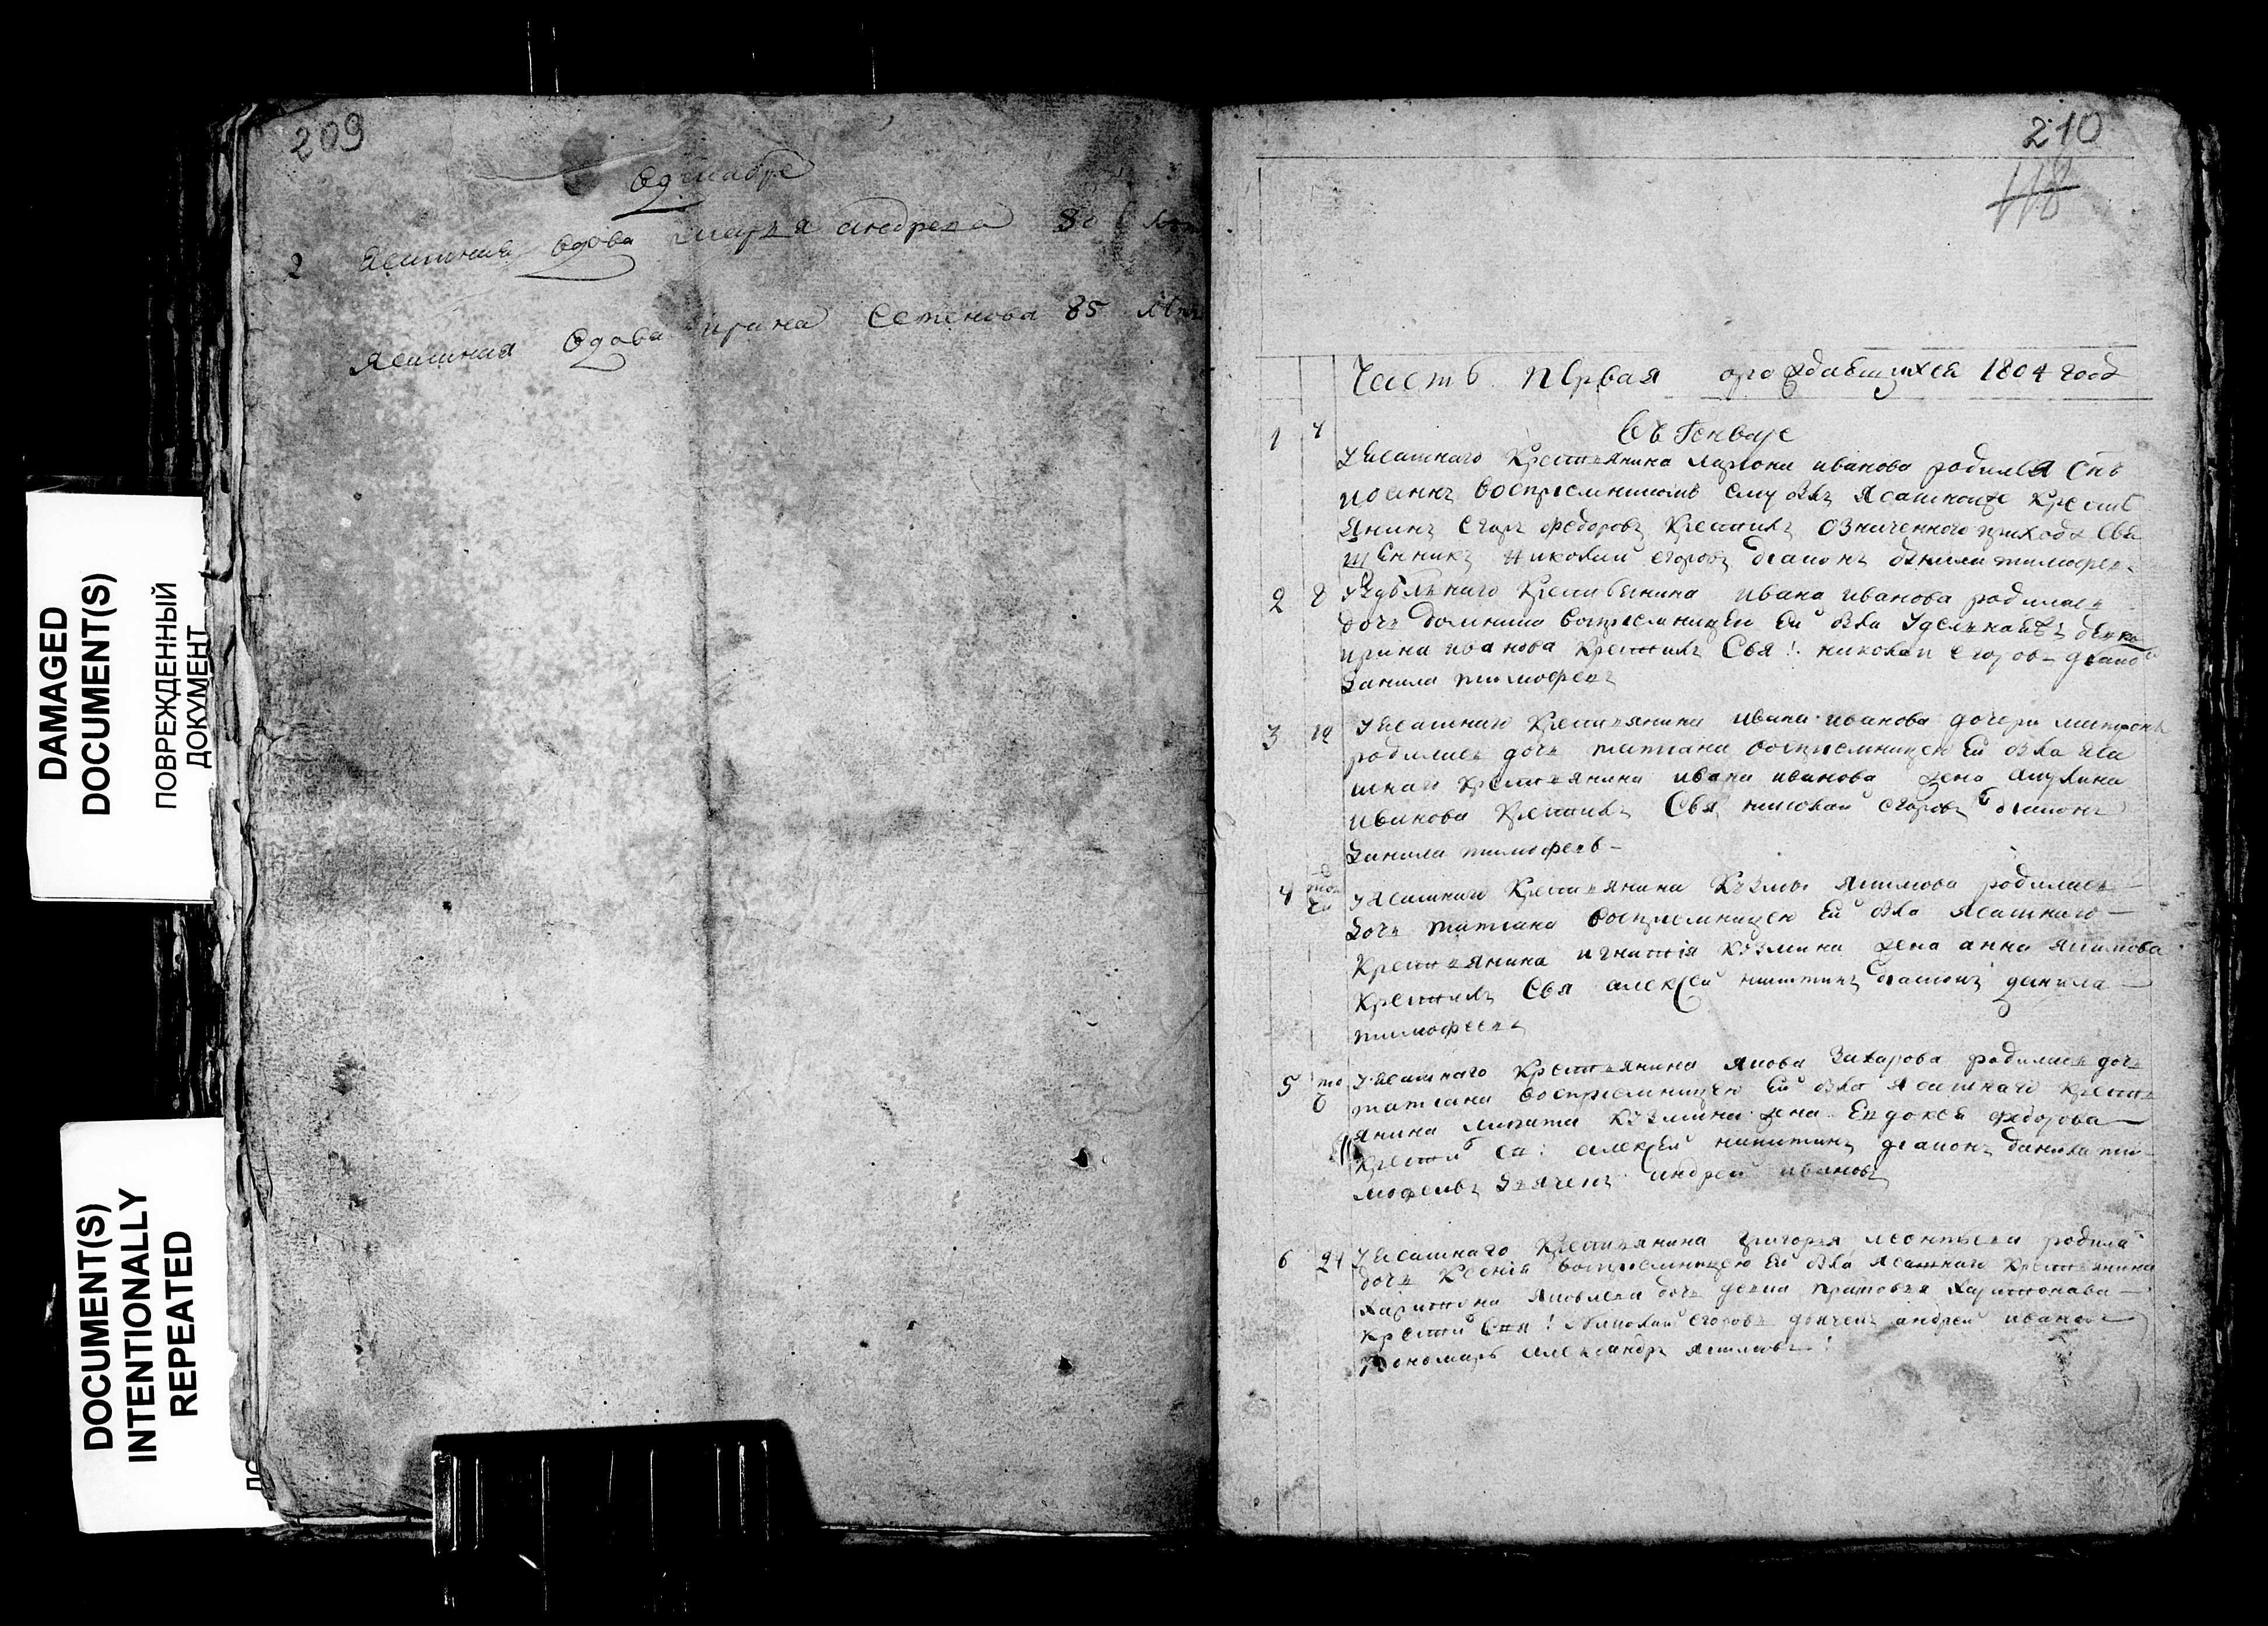 209
вдекабре
2 Ясашная вдова марья андреева 80 лет
Ясашная вдова ирина Семенова 85 лет
DAMAGED
DOCUMENT(S)
ПОВРЕЖДЕННЫЙ
ДОКУМЕНТ
DOCUMENT(S)
INTENTIONALLY
REPEATED
210
118
Часть первая ораждавшихся 1804 года
Въ Генваре
1 4 У Ясашнаго Крестьянина лариона иванова родился снъ
иоаннъ воспреемникомъ ему былъ Ясашной Кресть
янинъ егоръ федоровъ Крестилъ означенного прихода Свя
щенникъ николай егоровъ диаконъ данила тимофеев
2 8 У Удѣльнаго Крестьянина ивана иванова родилась
дочь домника воспреемницею ей была Удельная девка
ирина иванова Крестилъ Свя: николай егоровъ диакон
данила тимофеевъ
3 10 У Ясашнаго Крестьянина ивана иванова дочери матроны
родилась дочь татиана воспреемницею ей была яса
шнаго Крестьянина ивана иванова жена акулина
иванова Крестилъ Свя николай егоровъ диаконъ
данила тимофеевъ
4 У Ясашнаго Крестьянина Кузмы якимова родилась
дочь татиана воспреемницею ей была ясашнаго
Крестьянина игнатия Кузмина жена анна якимова
Крестилъ Свя алексей никитинъ диаконъ данила
тимофеевъ
5 У Ясашнаго Крестьянина якова Захарова родилась дочь
татиана воспреемницею ей была ясашнаго Кресть
янина липата Кузмина жена Евдокея федорова
Крестил св: алексей никитинъ диаконъ данила ти
мофеевъ дьячекъ андрей ивановъ
6 24 У Ясашнаго Крестьянина григорья леонтьева родила
дочь Ксения воспреемницею ей была ясашнаго Крестьянина
харитона яковлева дочь девка прасковья харитонова
крестил Свя: николай егоровъ дьячекъ андрей иванов
пономарь александръ якимовъ